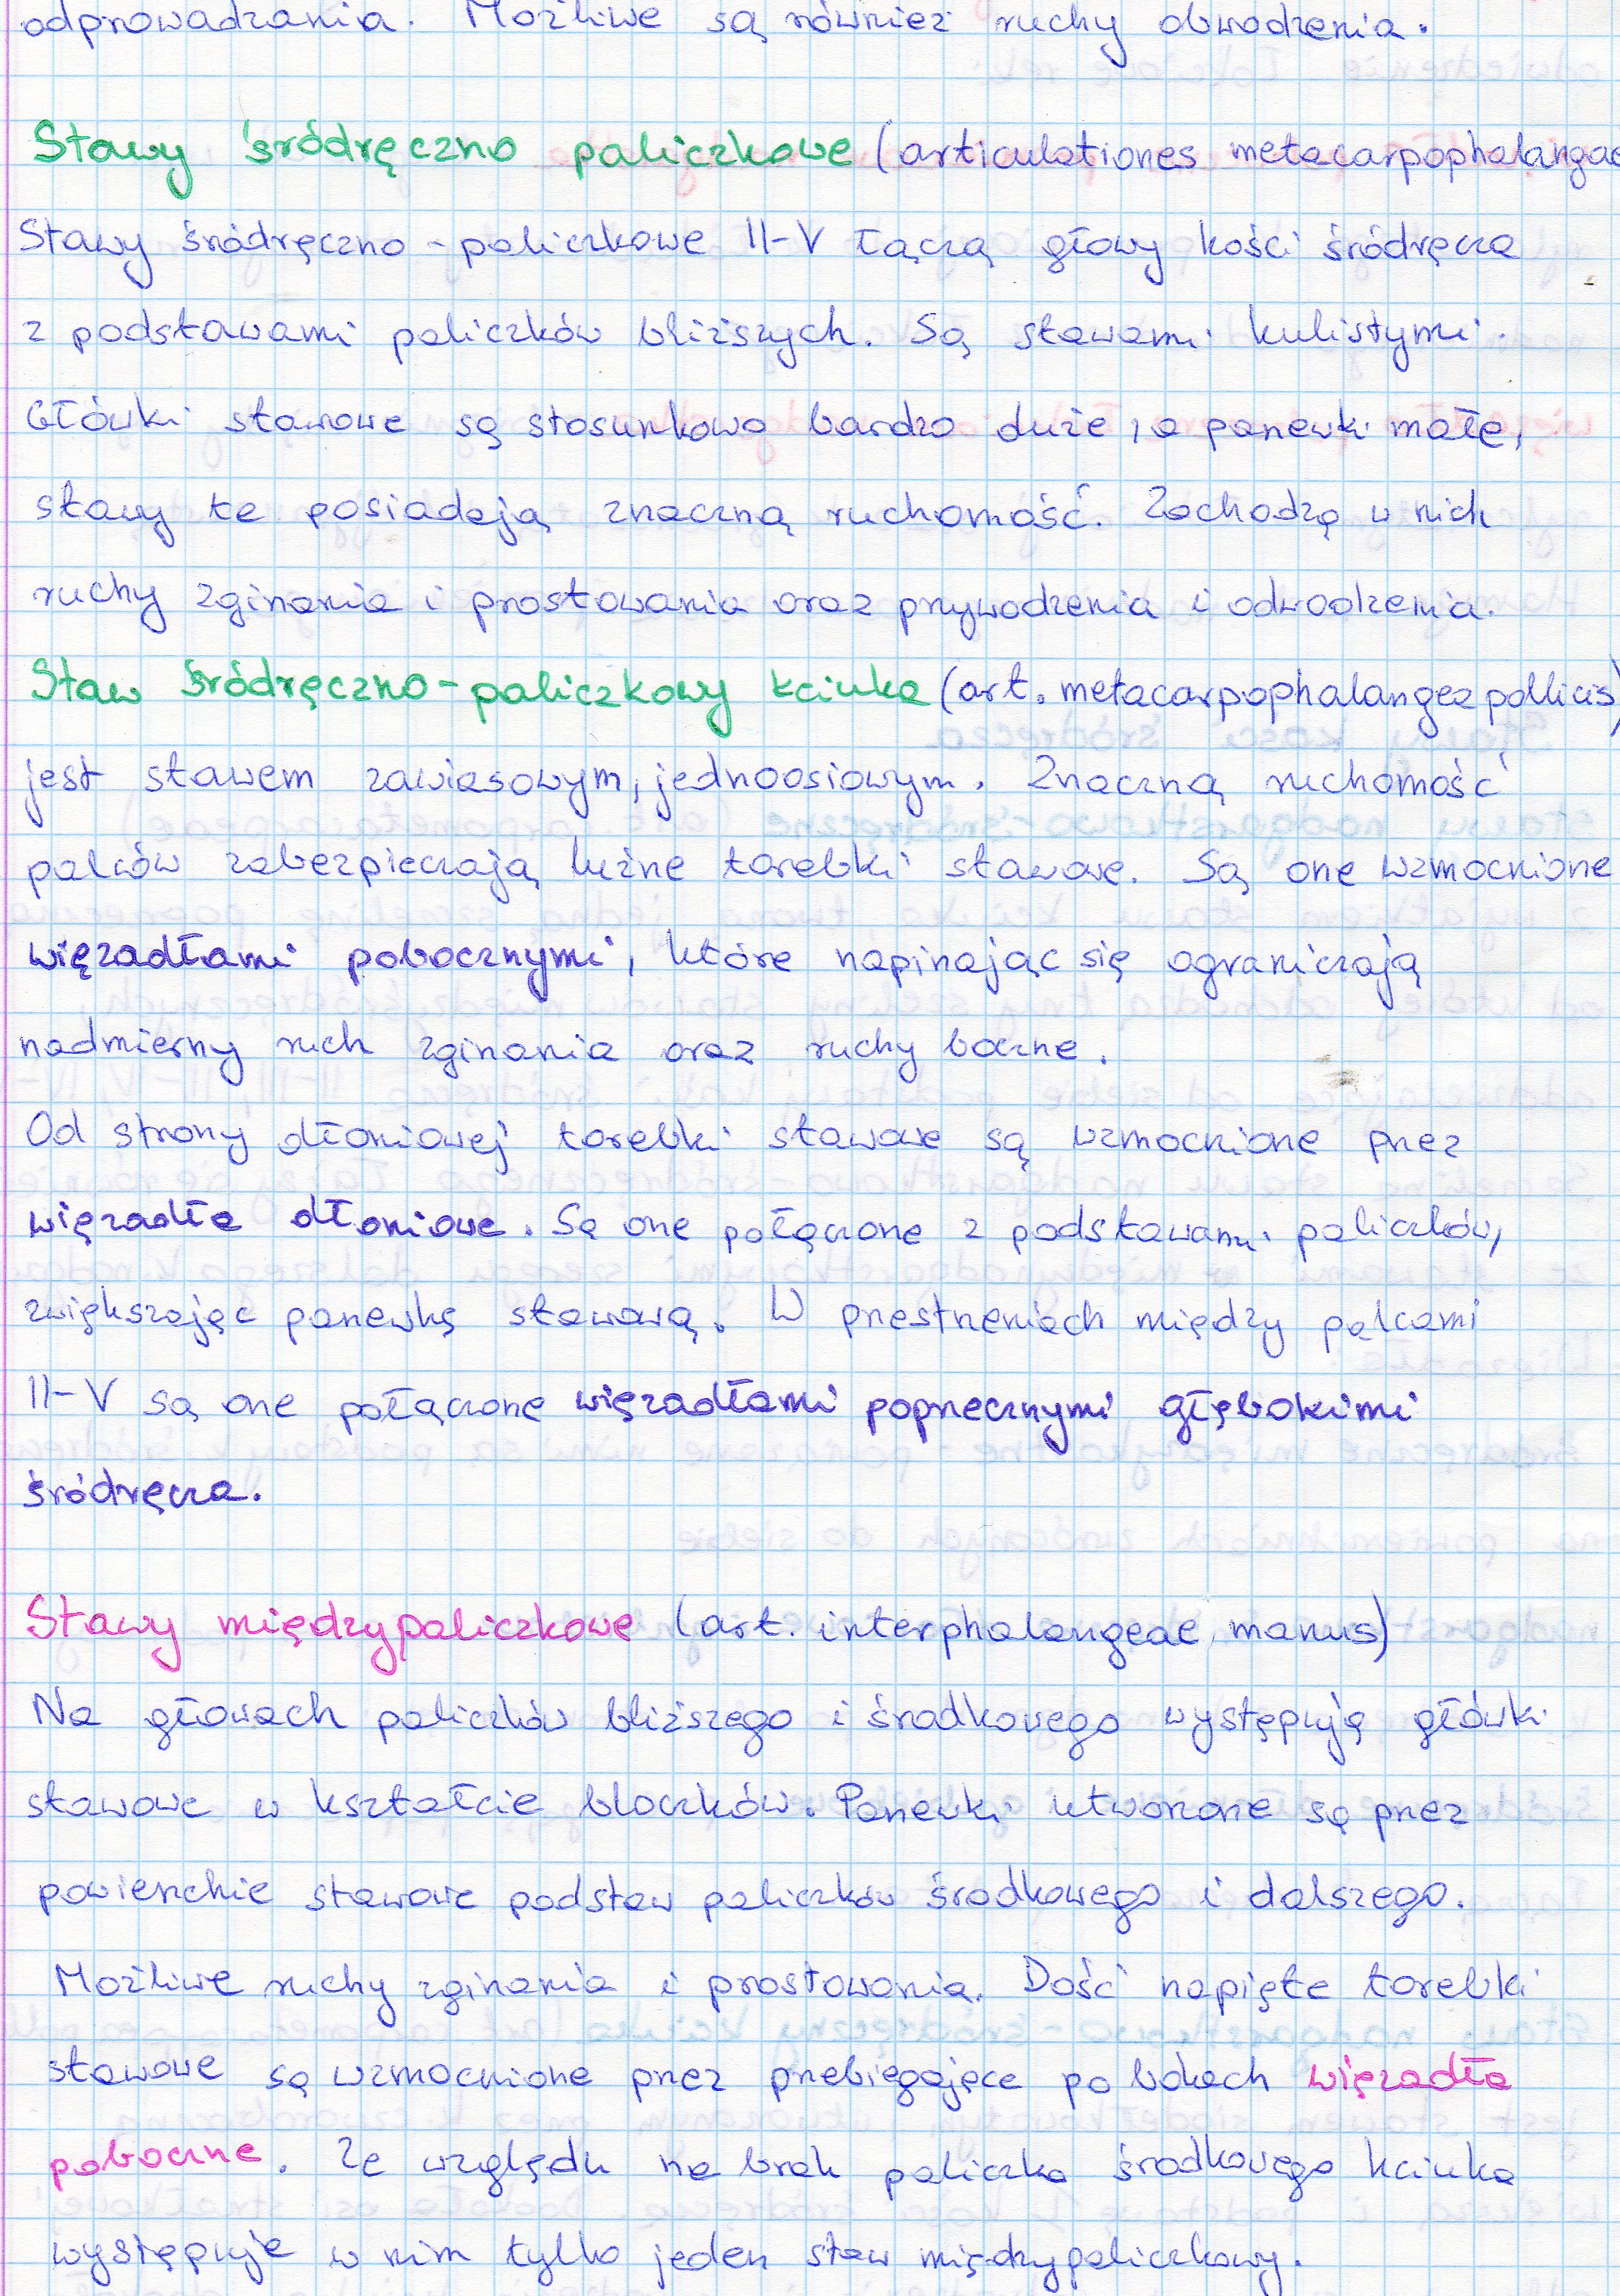 odprowadzania. Możliwe są również ruchy obwodzenia.
Stawy śródręczno paliczkowe (articulationes metacarpophalangae
Stawy śródręczno-paliczkowe II-V łączą głowy kości śródręcza
z podstawami paliczków bliższych. Są stawami kulistymi.
Główki stawowe są stosunkowo bardzo duże, a panewki małe,
stawy te posiadają znaczną ruchomość. Zachodzą w nich
ruchy zginania i prostowania oraz przywodzenia i odwodzenia.
Staw śródręczno-paliczkowy kciuka (art. metacarpophalangea pollicis)
jest stawem zawiasowym, jednoosiowym. Znaczną ruchomość
palców zabezpieczają luźne torebki stawowe. Są one wzmocnione
więzadłami pobocznymi, które napinając się ograniczają
nadmierny ruch zginania oraz ruchy boczne.
Od strony dłoniowej torebki stawowe są wzmocnione przez
więzadła dłoniowe. Są one połączone z podstawami paliczków,
zwiększając panewkę stawową. W przestrzeniach między palcami
II-V są one połączone więzadłami poprzecznymi głębokimi
śródręcza.
Stawy międzypaliczkowe (art. interphalangeae manus)
Na głowach paliczków bliższego i środkowego występują główki
stawowe w kształcie bloczków. Panewki utworzone są przez
powierzchnie stawowe podstaw paliczków środkowego i dalszego.
Możliwe ruchy zginania i prostowania. Dość napięte torebki
stawowe są wzmocnione przez przebiegające po bokach więzadła
poboczne. Ze względu na brak paliczka środkowego kciuka
występuje w nim tylko jeden staw międzypaliczkowy.